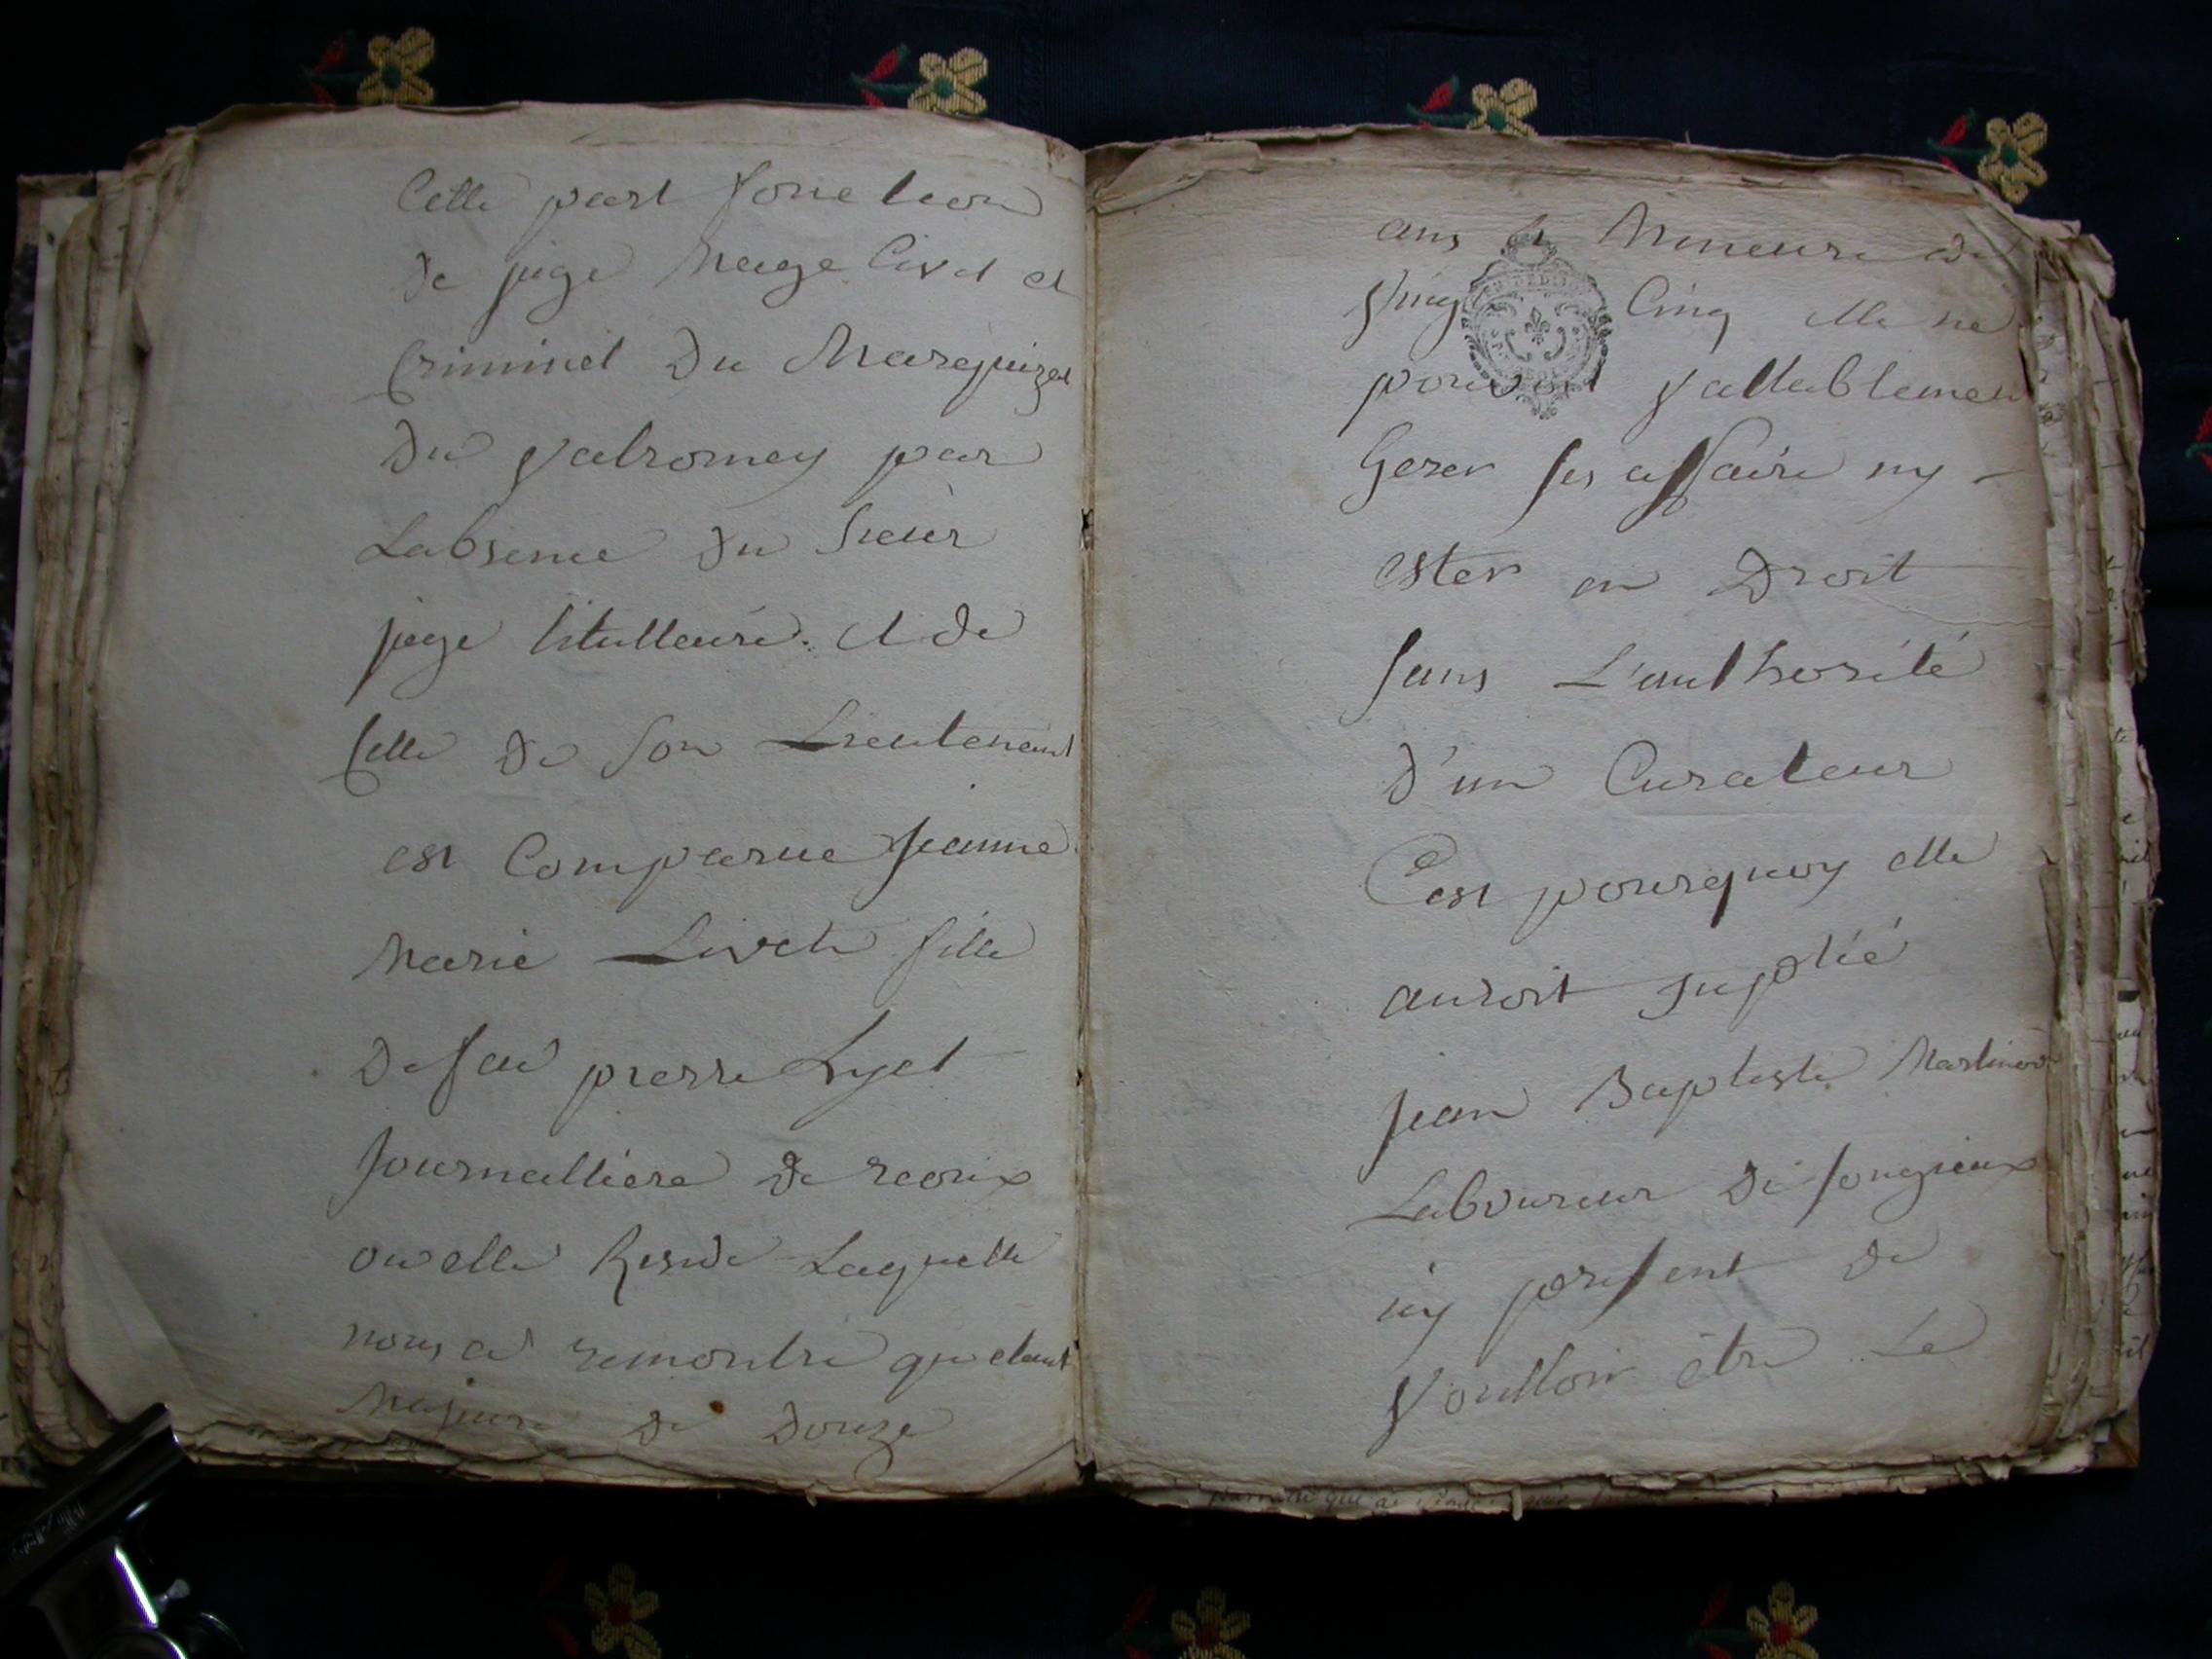 Cette part fonction
de juge Mage Civil et
Criminel Du Marquizat
Du Valromey par
Labsence du Sieur
juge titullaire. et de
Celle de son Lieutenant
est Comparue Jeanne
Marie Livet fille
De feu pierre Lyvet
Journallière de
ou elle Reside Laquelle
nous a remontré quetant
Majeure de Douze
ans et Mineure de
Vingt Cinq elle ne
pouvoit vallablement
Gerer ses affaire ny
ester en Droit
sans L'authorité
D'un Curateur
C'est pourquoy elle
auroit suplié
jean Baptiste Martinod
Laboureur de songieux
icy present de
Voulloir être Le